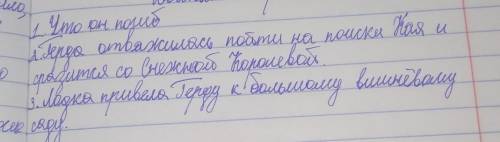 1. Что он погиб
2. Герда отважилась пойти на поиски Кая и
сразится со Снежной Королевой.
3. Лодка привела Герду к большому вишнёвому
саду.